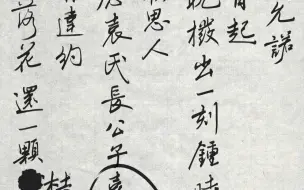 允諾
起
晚撥出一刻鍾時
思人
袁氏長公子袁
違約
落花還一顆